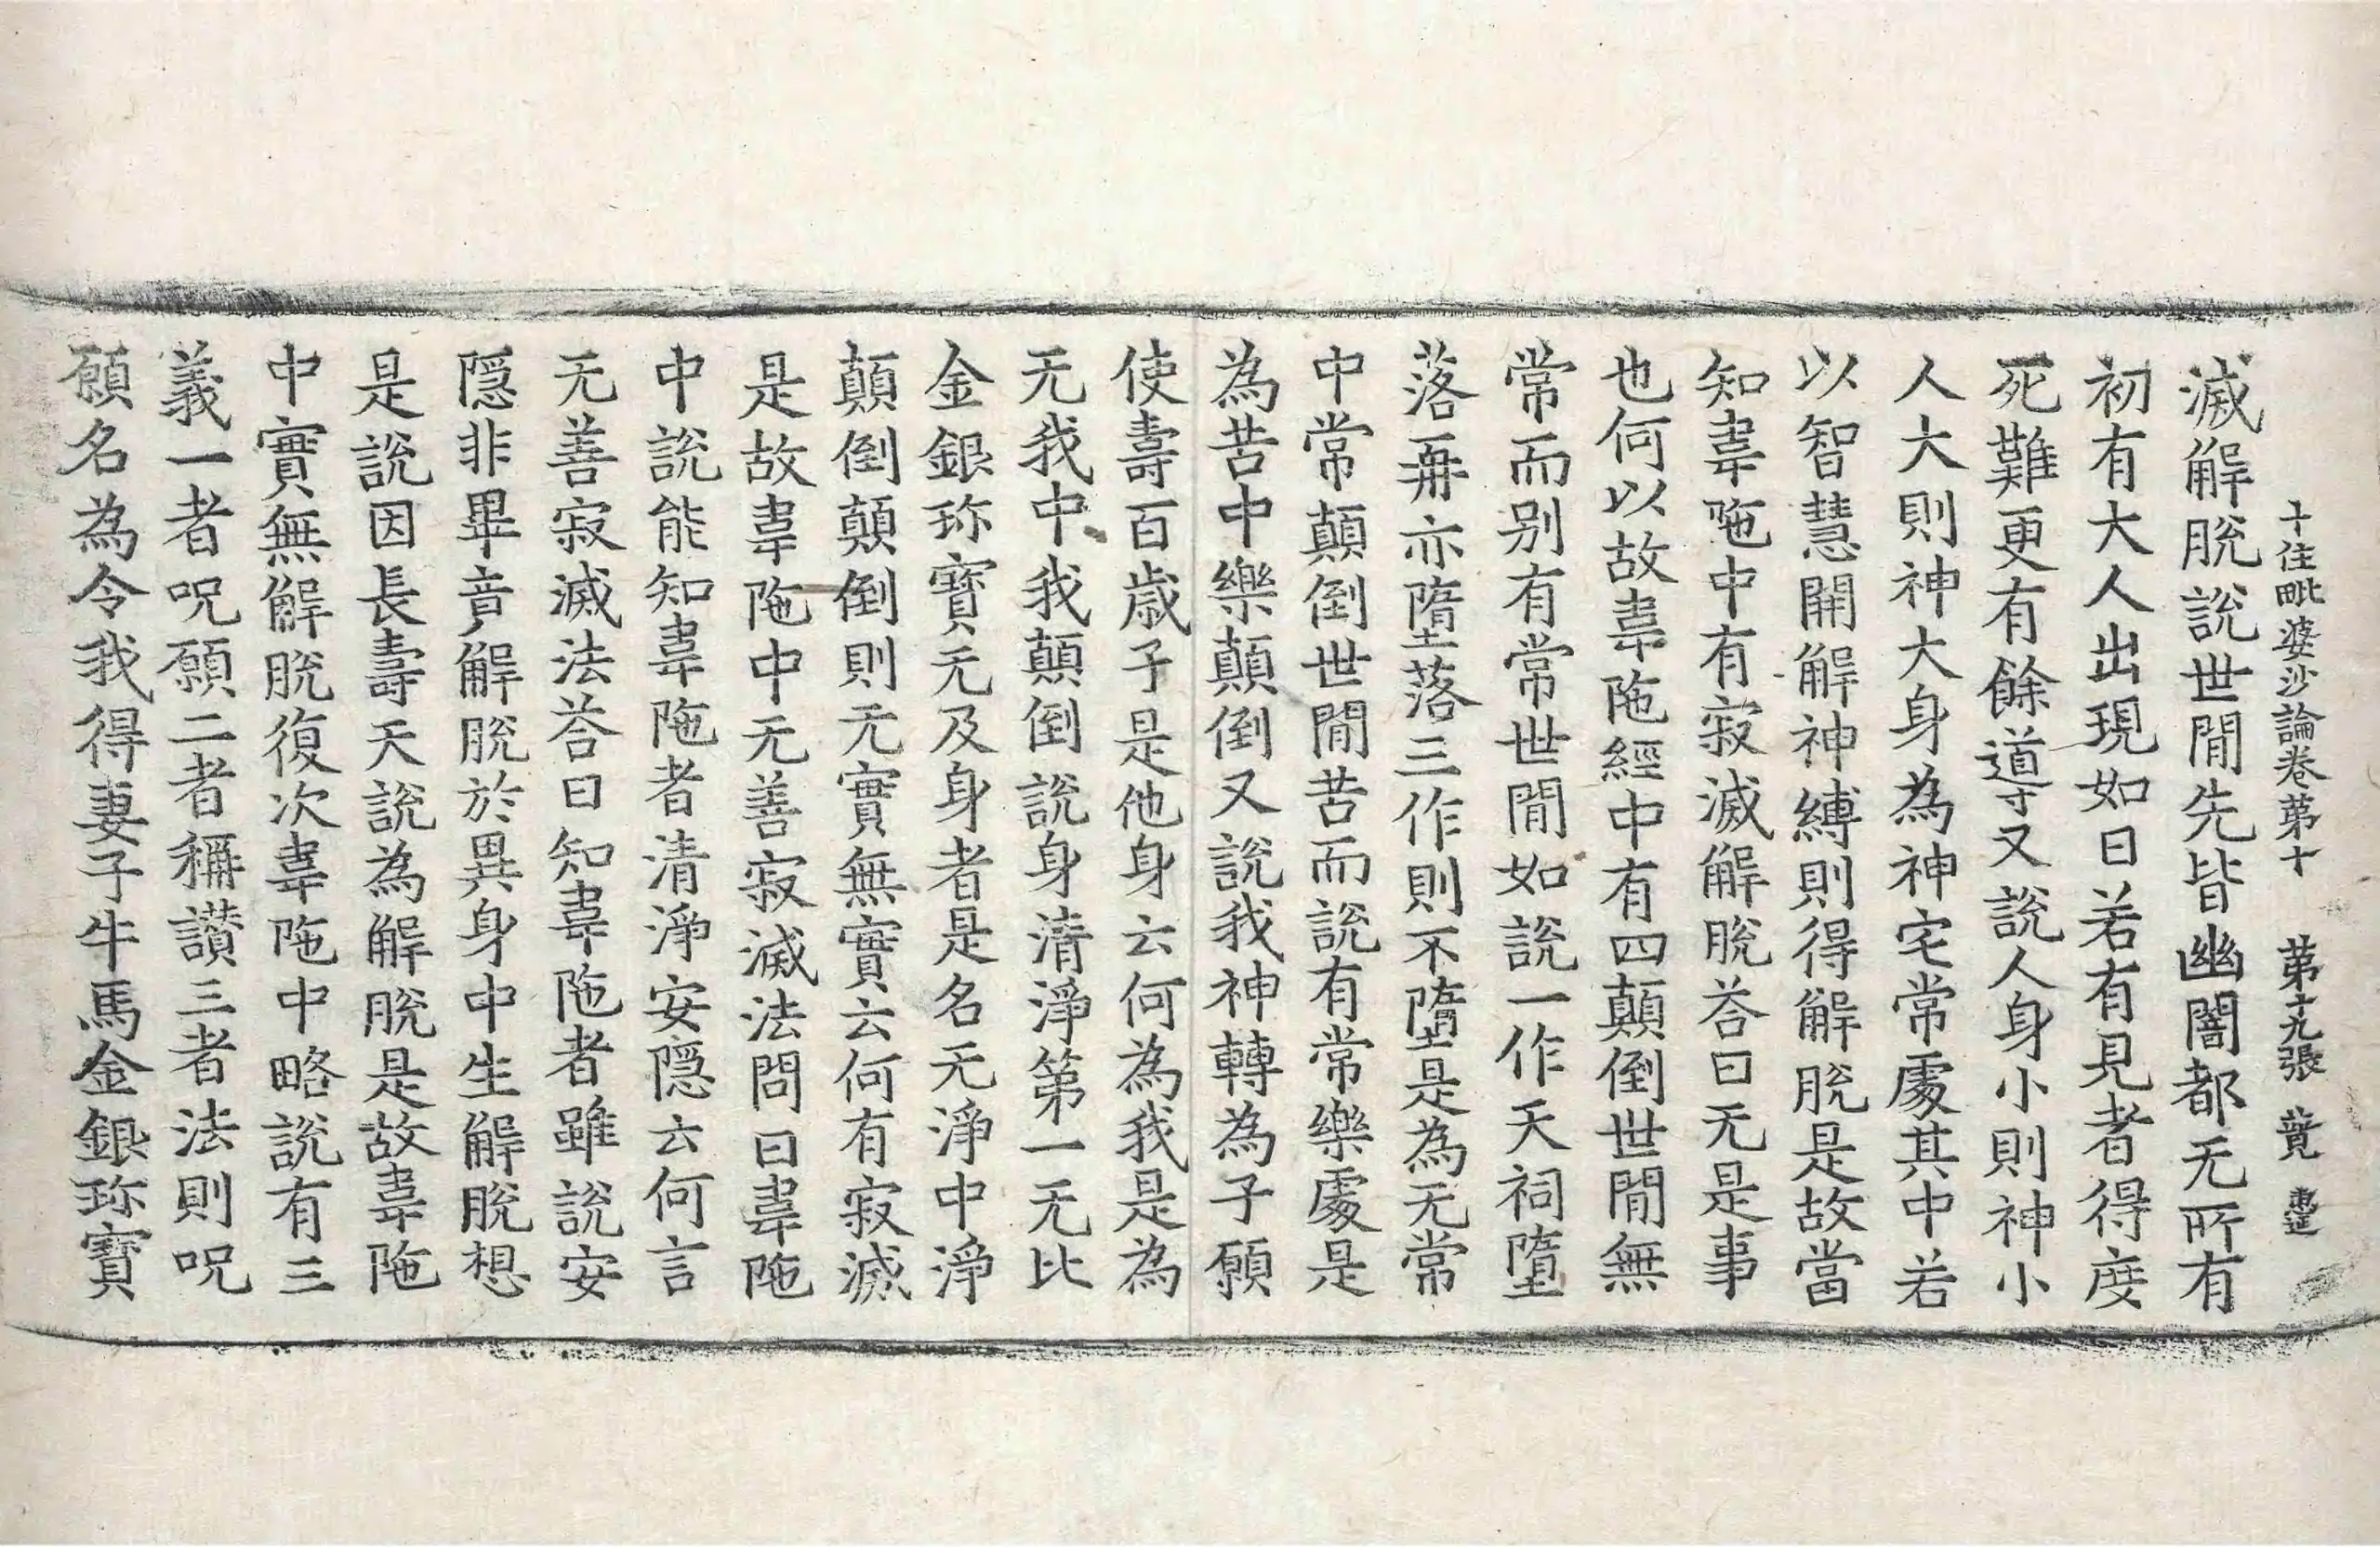 十住毗婆沙論卷第十 第十九張 覽
滅解脫說世閒先皆幽闇都无所有
初有大人出現如日若有見者得度
死難更有餘導又說人身小則神小
人大則神大身為神宅常處其中若
以智慧開解神縛則得解脫是故當
知韋陁中有寂滅解脫荅曰无是事
也何以故韋陁經中有四顛倒世閒無
常而別有常世閒如說一作天祠墮
落再亦墮落三作則不墮是為无常
中常顛倒世閒苦而說有常樂處是
為苦中樂顛倒又說我神轉為子願
使壽百歲子是他身云何為我是為
无我中我顛倒說身清淨第一无比
金銀珎寶无及身者是名无淨中淨
顛倒顛倒則无實無實云何有寂滅
是故韋陁中无善寂滅法問曰韋陁
中說能知韋陁者清淨安隱云何言
无善寂滅法荅曰知韋陁者雖說安
隱非畢竟解脫於異身中生解脫想
是說因長壽天說為解脫是故韋陁
中實無解脫復次韋陁中略說有三
義一者呪願二者稱讚三者法則呪
願名為令我得妻子牛馬金銀珎寶